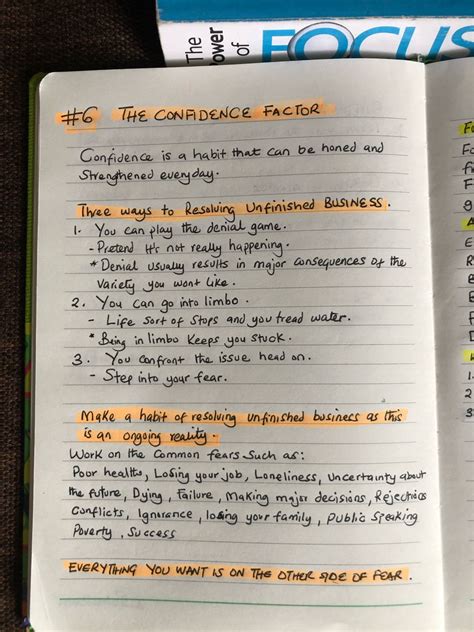 The
Power
of
FOCUS
#6 THE CONFIDENCE FACTOR
Confidence is a habit that can be honed and
strengthened everyday.
Three ways to Resolving Unfinished BUSINESS.
1. You can play the denial game.
- Pretend It's not really happening.
* Denial usually results in major consequences of the
Variety you wont like.
2. You can go into limbo.
- Life sort of stops and you tread water.
* Being in limbo keeps you stuck.
3. You confront the issue head on.
- Step into your fear.
Make a habit of resolving unfinished business as this
is an ongoing reality.
Work on the common fears such as:
Poor health, Losing your job, Loneliness, Uncertainty about
the future, Dying, Failure, Making major decisions, Rejections
Conflicts, Ignorance, losing your family, Public Speaking
Poverty, Success
EVERYTHING YOU WANT IS ON THE OTHER SIDE OF FEAR.